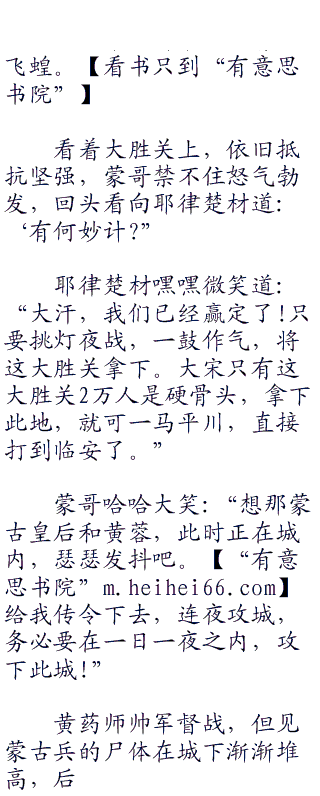 飞蝗。【看书只到“有意思
书院”】
看着大胜关上，依旧抵
抗坚强，蒙哥禁不住怒气勃
发，回头看向耶律楚材道：
‘有何妙计?”
耶律楚材嘿嘿微笑道：
“大汗，我们已经赢定了!只
要挑灯夜战，一鼓作气，将
这大胜关拿下。大宋只有这
大胜关2万人是硬骨头，拿下
此地，就可一马平川，直接
打到临安了。”
蒙哥哈哈大笑：“想那蒙
古皇后和黄蓉，此时正在城
内，瑟瑟发抖吧。【“有意
思书院”m.heihei66.com】
给我传令下去，连夜攻城，
务必要在一日一夜之内，攻
下此城!”
黄药师帅军督战，但见
蒙古兵的尸体在城下渐渐堆
高，后